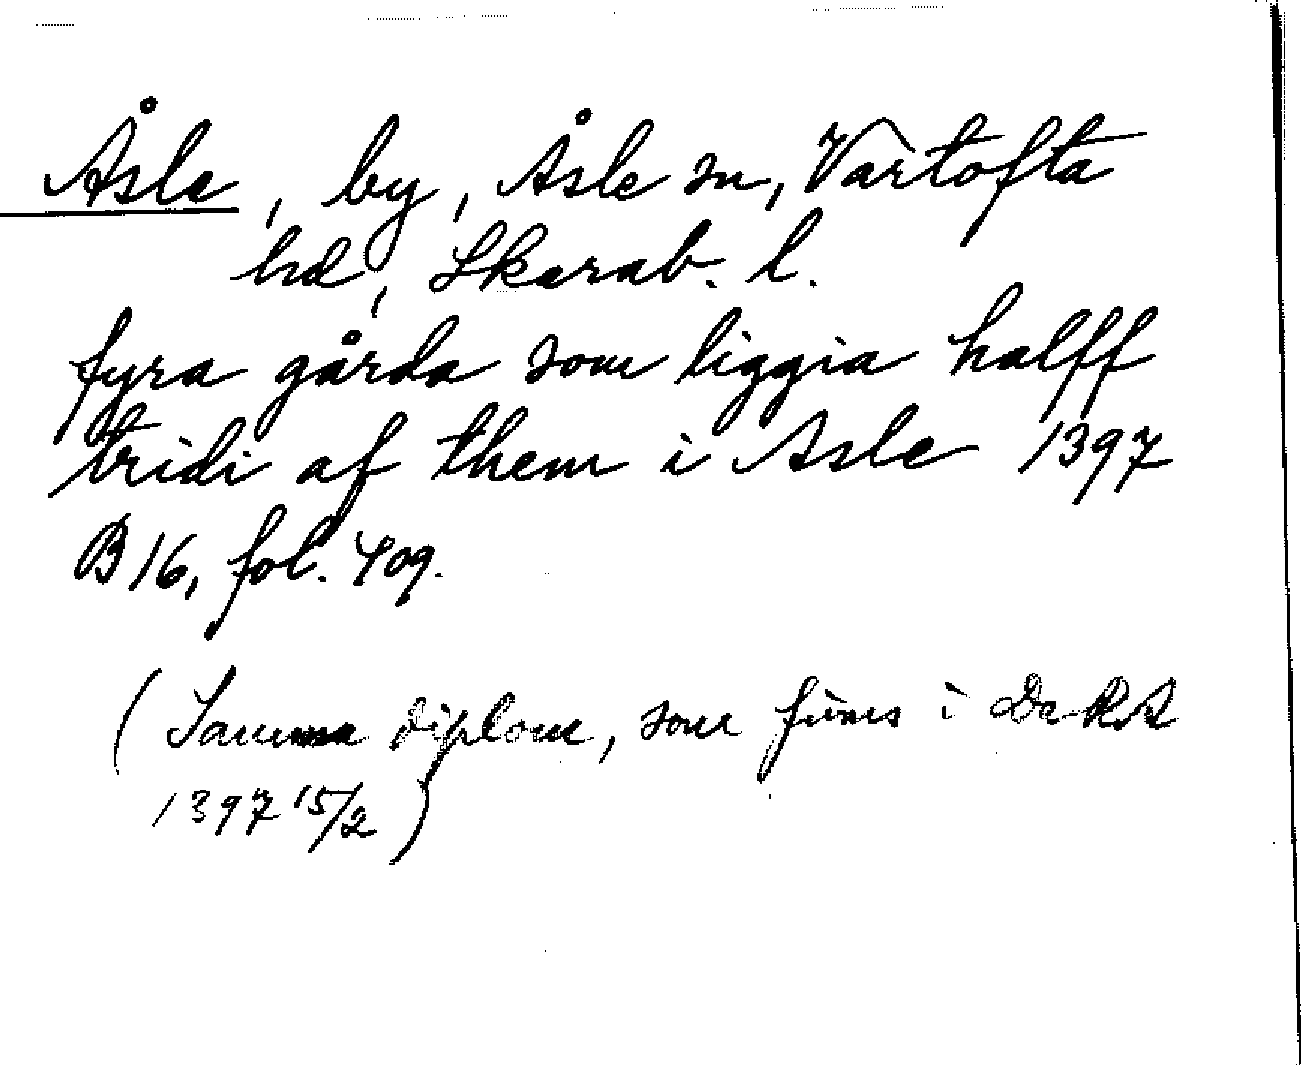 Åsle, by, Åsle sn, Vartofta
hd, Skarab. l.
fyra gårda som liggia halff
tridi af them i Asle 1397
B 16, fol. 409.
(Samma diplom, som finns i Da RA
1397 15/2)